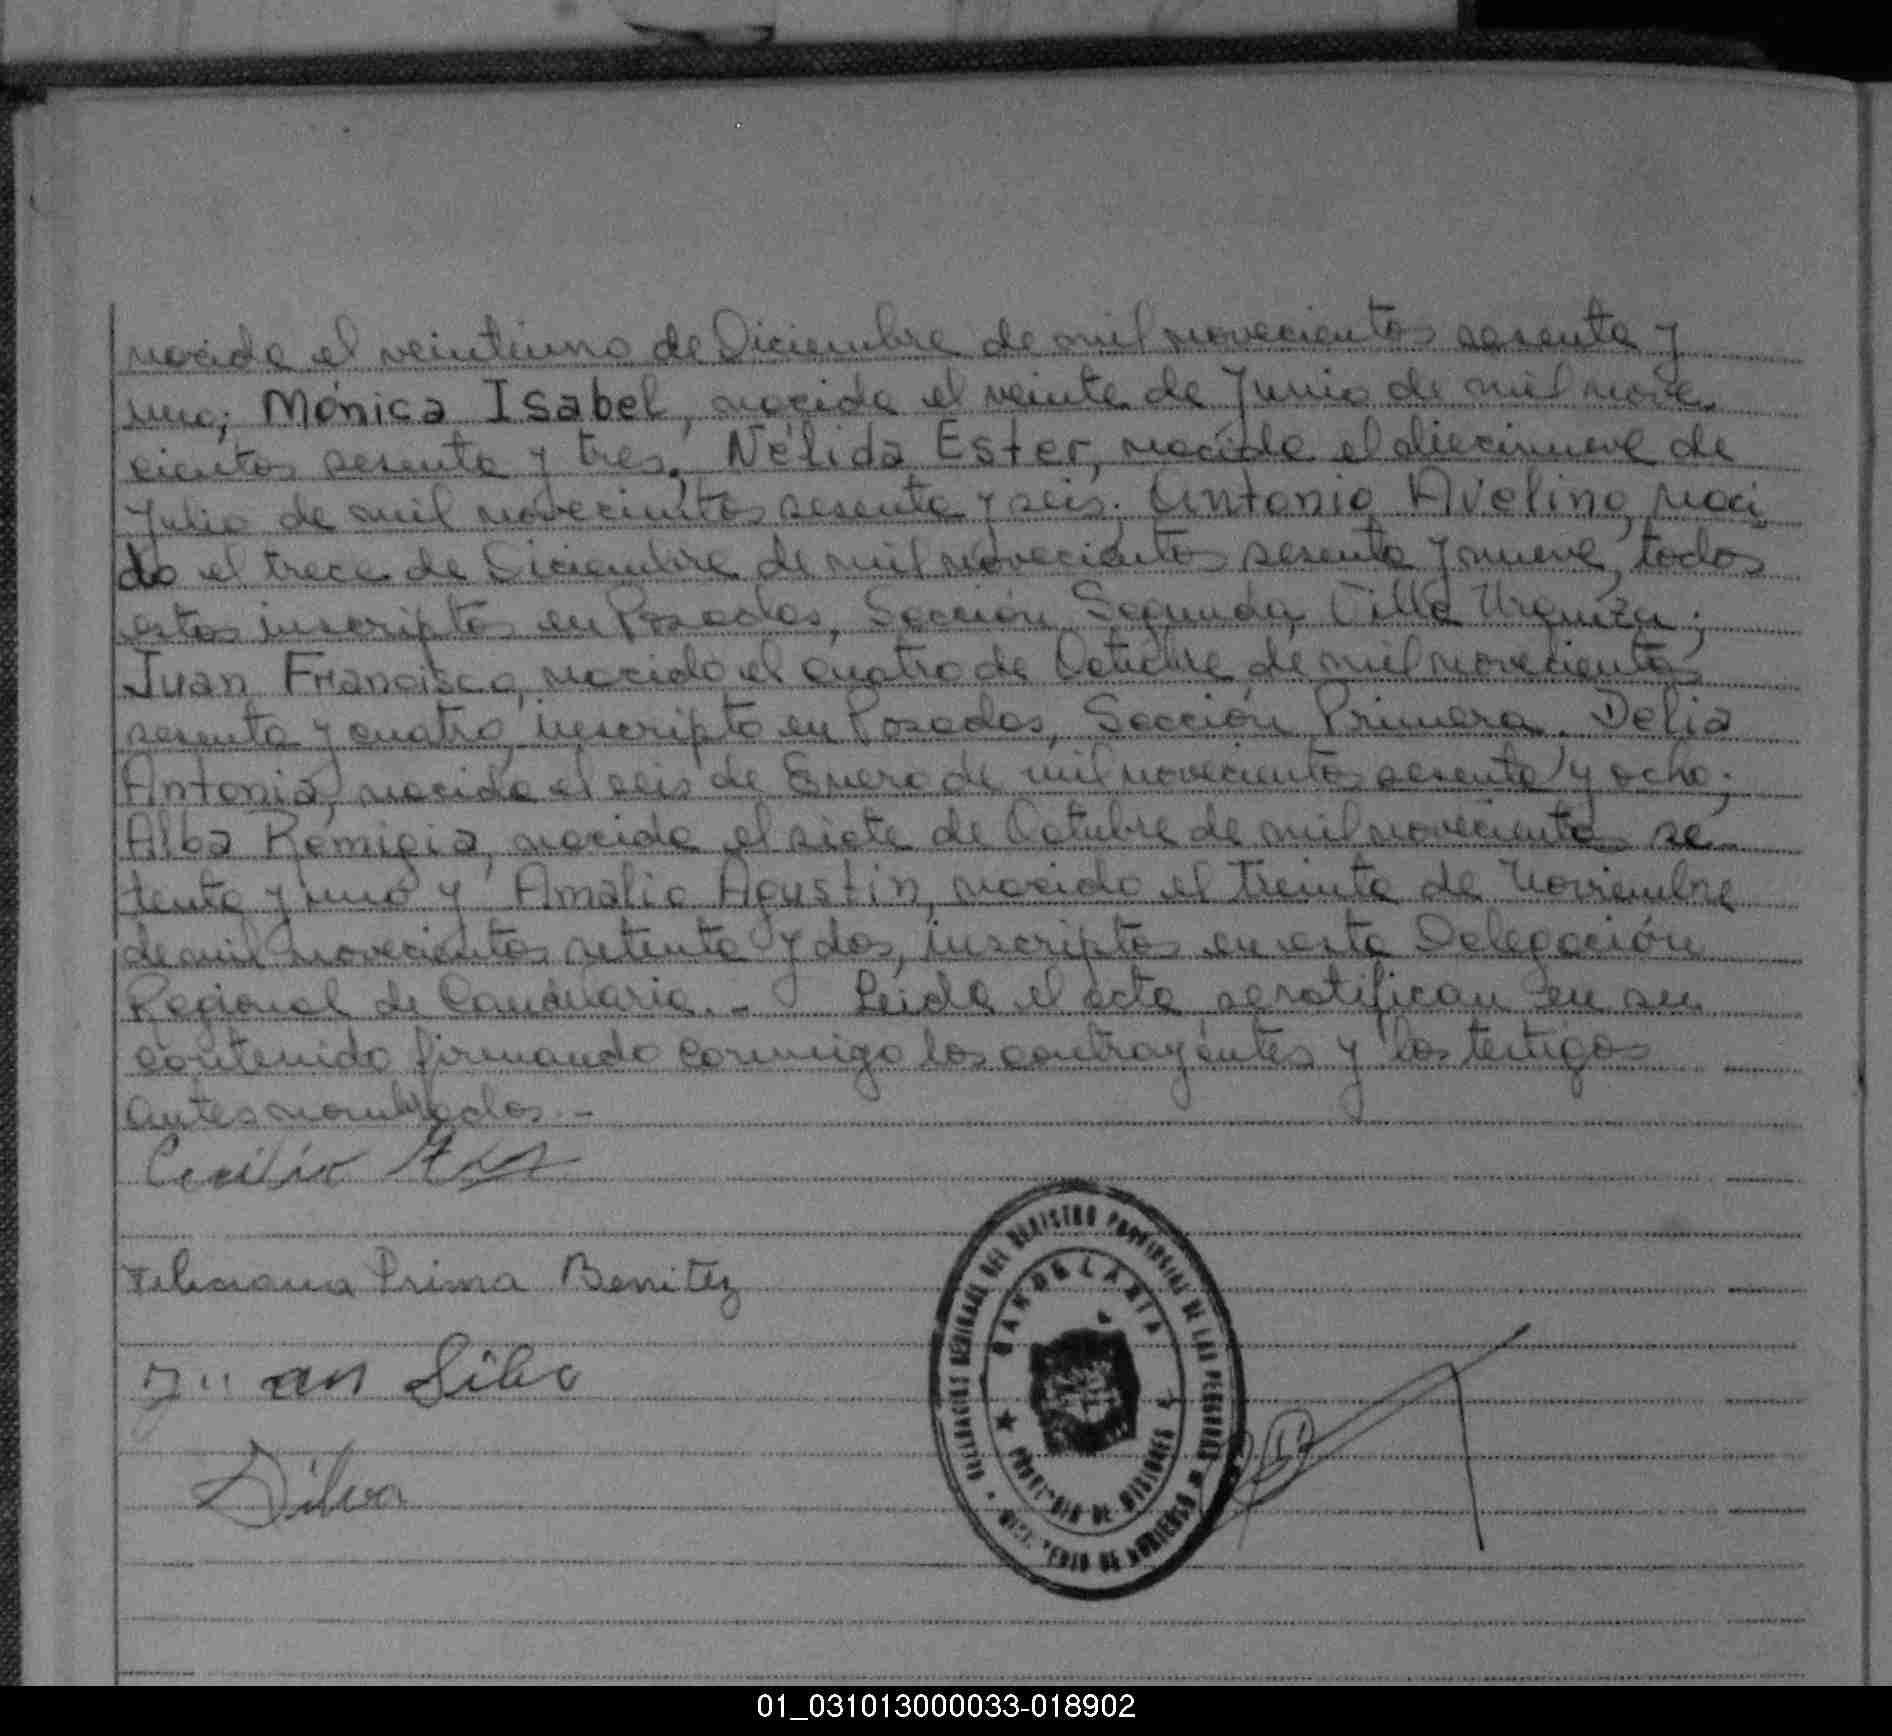 nacida el veintiuno de Diciembre de mil novecientos sesenta y
uno; Mónica Isabel, nacida el veinte de Junio de mil nove-
cientos sesenta y tres; Nélida Ester, nacida el diecinueve de
Julio de mil novecientos sesenta y seis; Antonio Avelino, naci-
do el trece de Diciembre de mil novecientos sesenta y nueve, todos
estos inscriptos en Posadas, Sección Segunda Villa Urquiza;
Juan Francisco, nacido el cuatro de Octubre de mil novecientos
sesenta y cuatro, inscripto en Posadas, Sección Primera. Delia
Antonia, nacida el seis de Enero de mil novecientos sesenta y ocho;
Alba Remigia, nacida el siete de Octubre de mil novecientos se-
tenta y uno y Amalio Agustin, nacido el treinta de Noviembre
de mil novecientos setenta y dos, inscriptos en esta Delegación
Regional de Candelaria.- Leida el acta se ratifican en su
contenido firmando conmigo los contrayentes y los testigos
antes nombrados.-
Cecilio
Feliciana Prima Benitez
Juan Silva
Silva
DELEGACION REGIONAL DEL REGISTRO PROVINCIAL DE LAS PERSONAS
CANDELARIA
PROVINCIA DE MISIONES
DE GOBIERNO
01_031013000033-018902